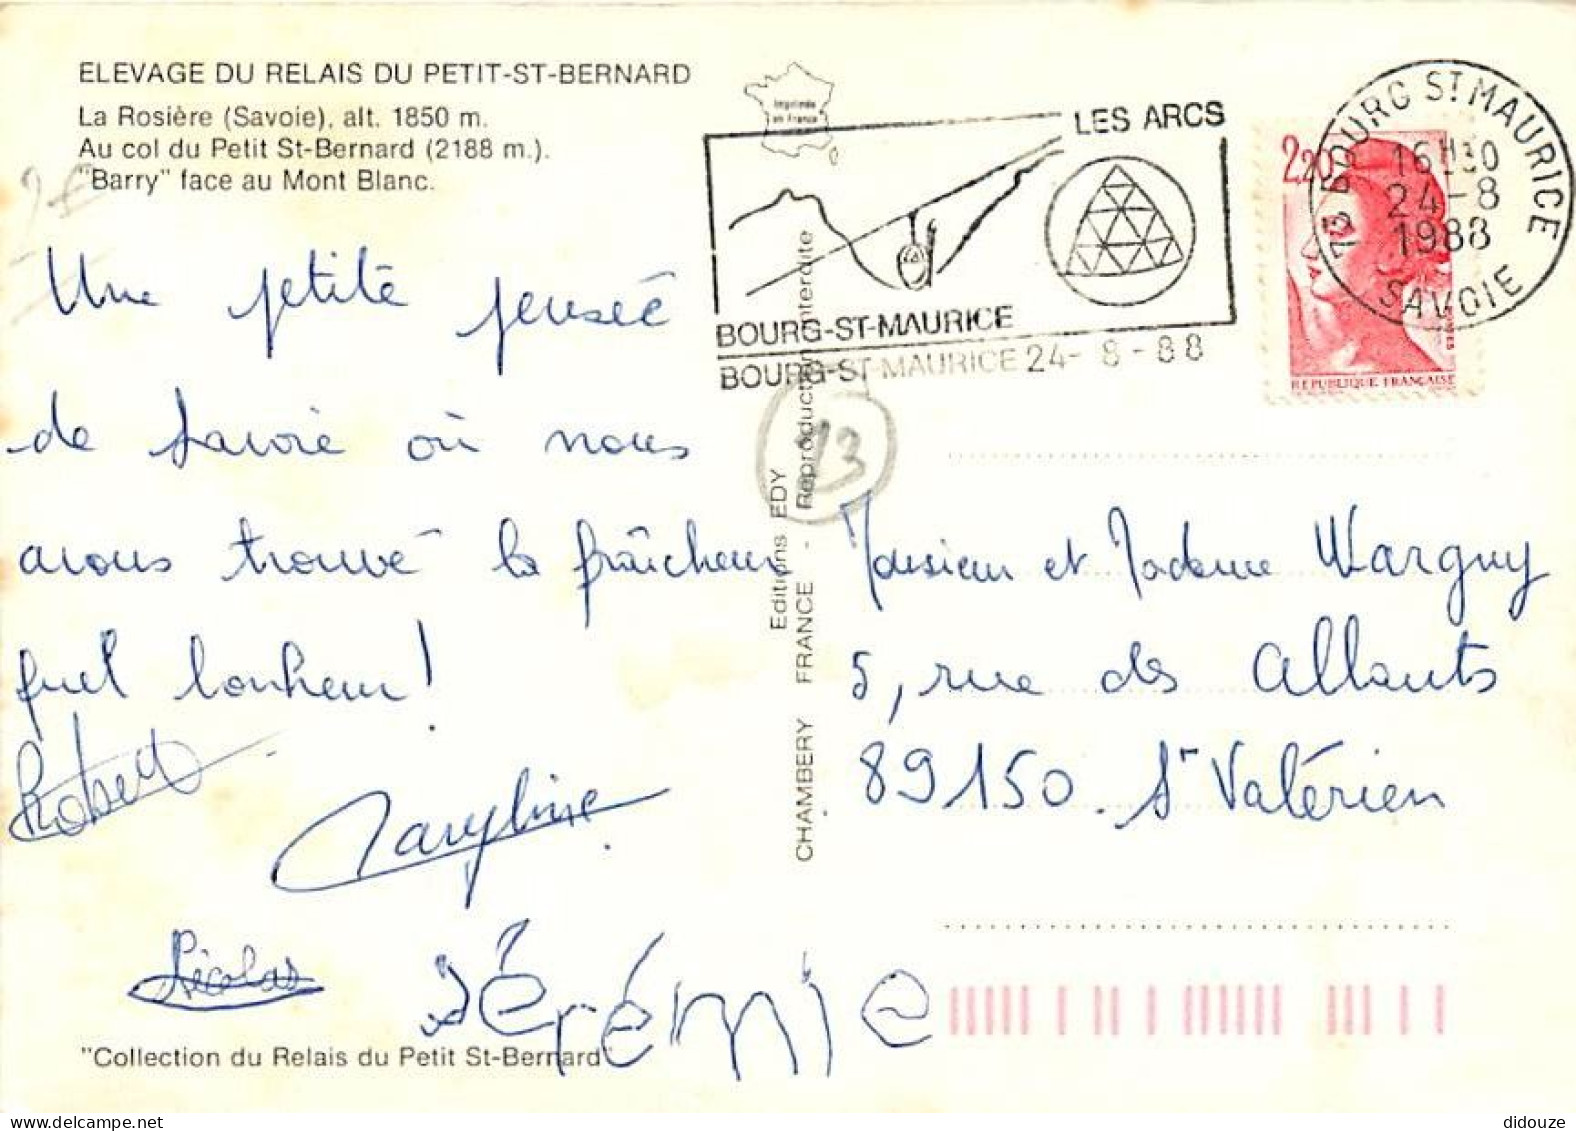 ELEVAGE DU RELAIS DU PETIT-ST-BERNARD
La Rosière (Savoie), alt. 1850 m.
Au col du Petit St-Bernard (2188 m.).
"Barry" face au Mont Blanc.
2€
Une petite pensée
de Savoie où nous
avons trouvé la fraîcheur
quel bonheur !
Robert
Maryline
Nicolas
Jérémie
"Collection du Relais du Petit St-Bernard"
Imprimée
en France
LES ARCS
BOURG-ST-MAURICE
BOURG-ST-MAURICE 24-8-88
2,20
REPUBLIQUE FRANÇAISE
73 BOURG ST MAURICE
16H30
24-8
1988
SAVOIE
13
Editions EDY
CHAMBERY FRANCE - Reproduction interdite
Monsieur et Madame Wargny
5, rue des Allouts
89150. St Valérien
didouze